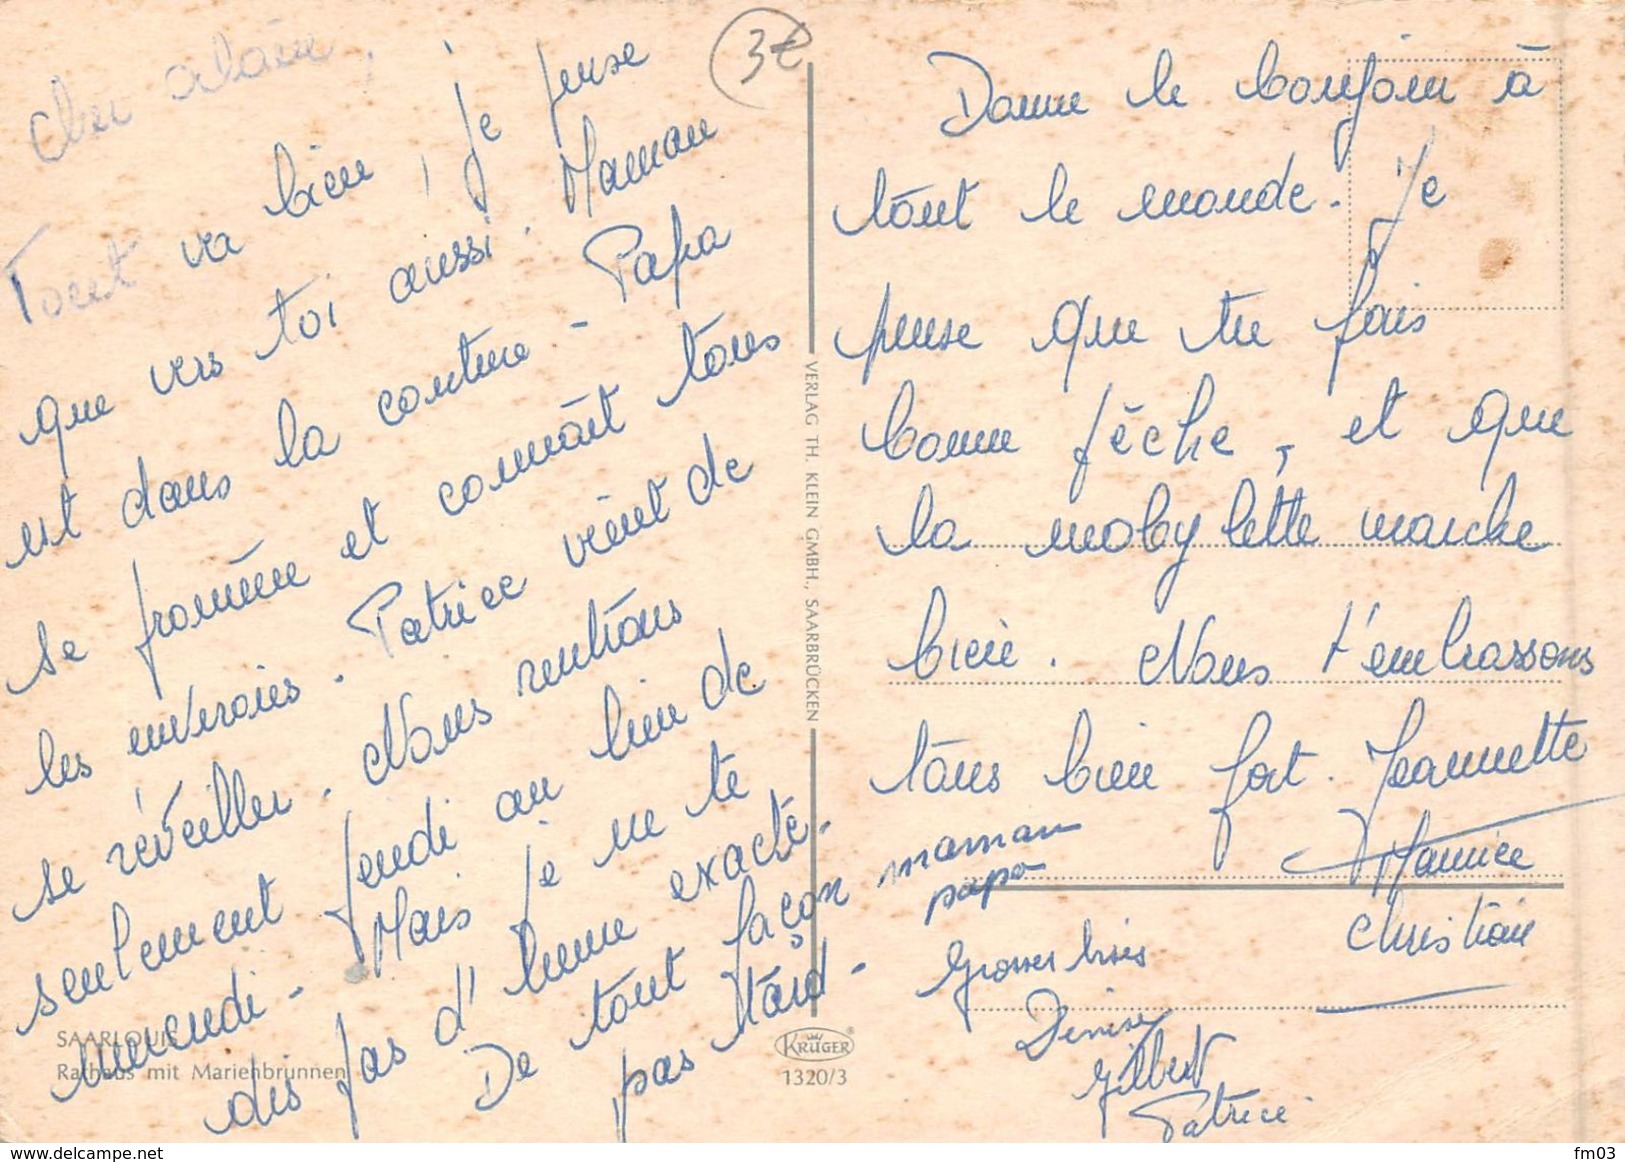 Cher Alain,
Tout va bien, je pense
que vers toi aussi. Maman
est dans la couture - Papa
se promène et connaît tous
les environs. Patrice vient de
se réveiller. Nous rentrons
seulement jeudi au lieu de
mercredi - Mais je ne te
dis pas d'heure exacte.
De tout façon
pas tard -
3€
Donne le bonjour à
tout le monde. Je
pense que tu fais
bonne pêche, et que
la mobylette marche
bien. Nous t'embrassons
tous bien fort. Jeannette
maman
papa
Maurice
Christian
Grosses bises
Denise
Gilbert
Patrice
VERLAG TH. KLEIN GMBH., SAARBRÜCKEN
SAARLOUIS
Rathaus mit Marienbrunnen
KRÜGER®
1320/3
www.delcampe.net
fm03